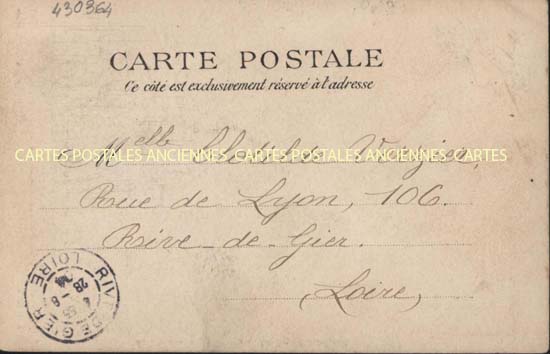 430364
CARTE POSTALE
Ce côté est exclusivement réservé à l'adresse
Melle Verzier,
CARTES POSTALES ANCIENNES CARTES POSTALES ANCIENNES CARTES
Rue de Lyon, 106.
Rive-de-Gier.
(Loire)
RIVE DE GIER
LOIRE
28 - 8
04